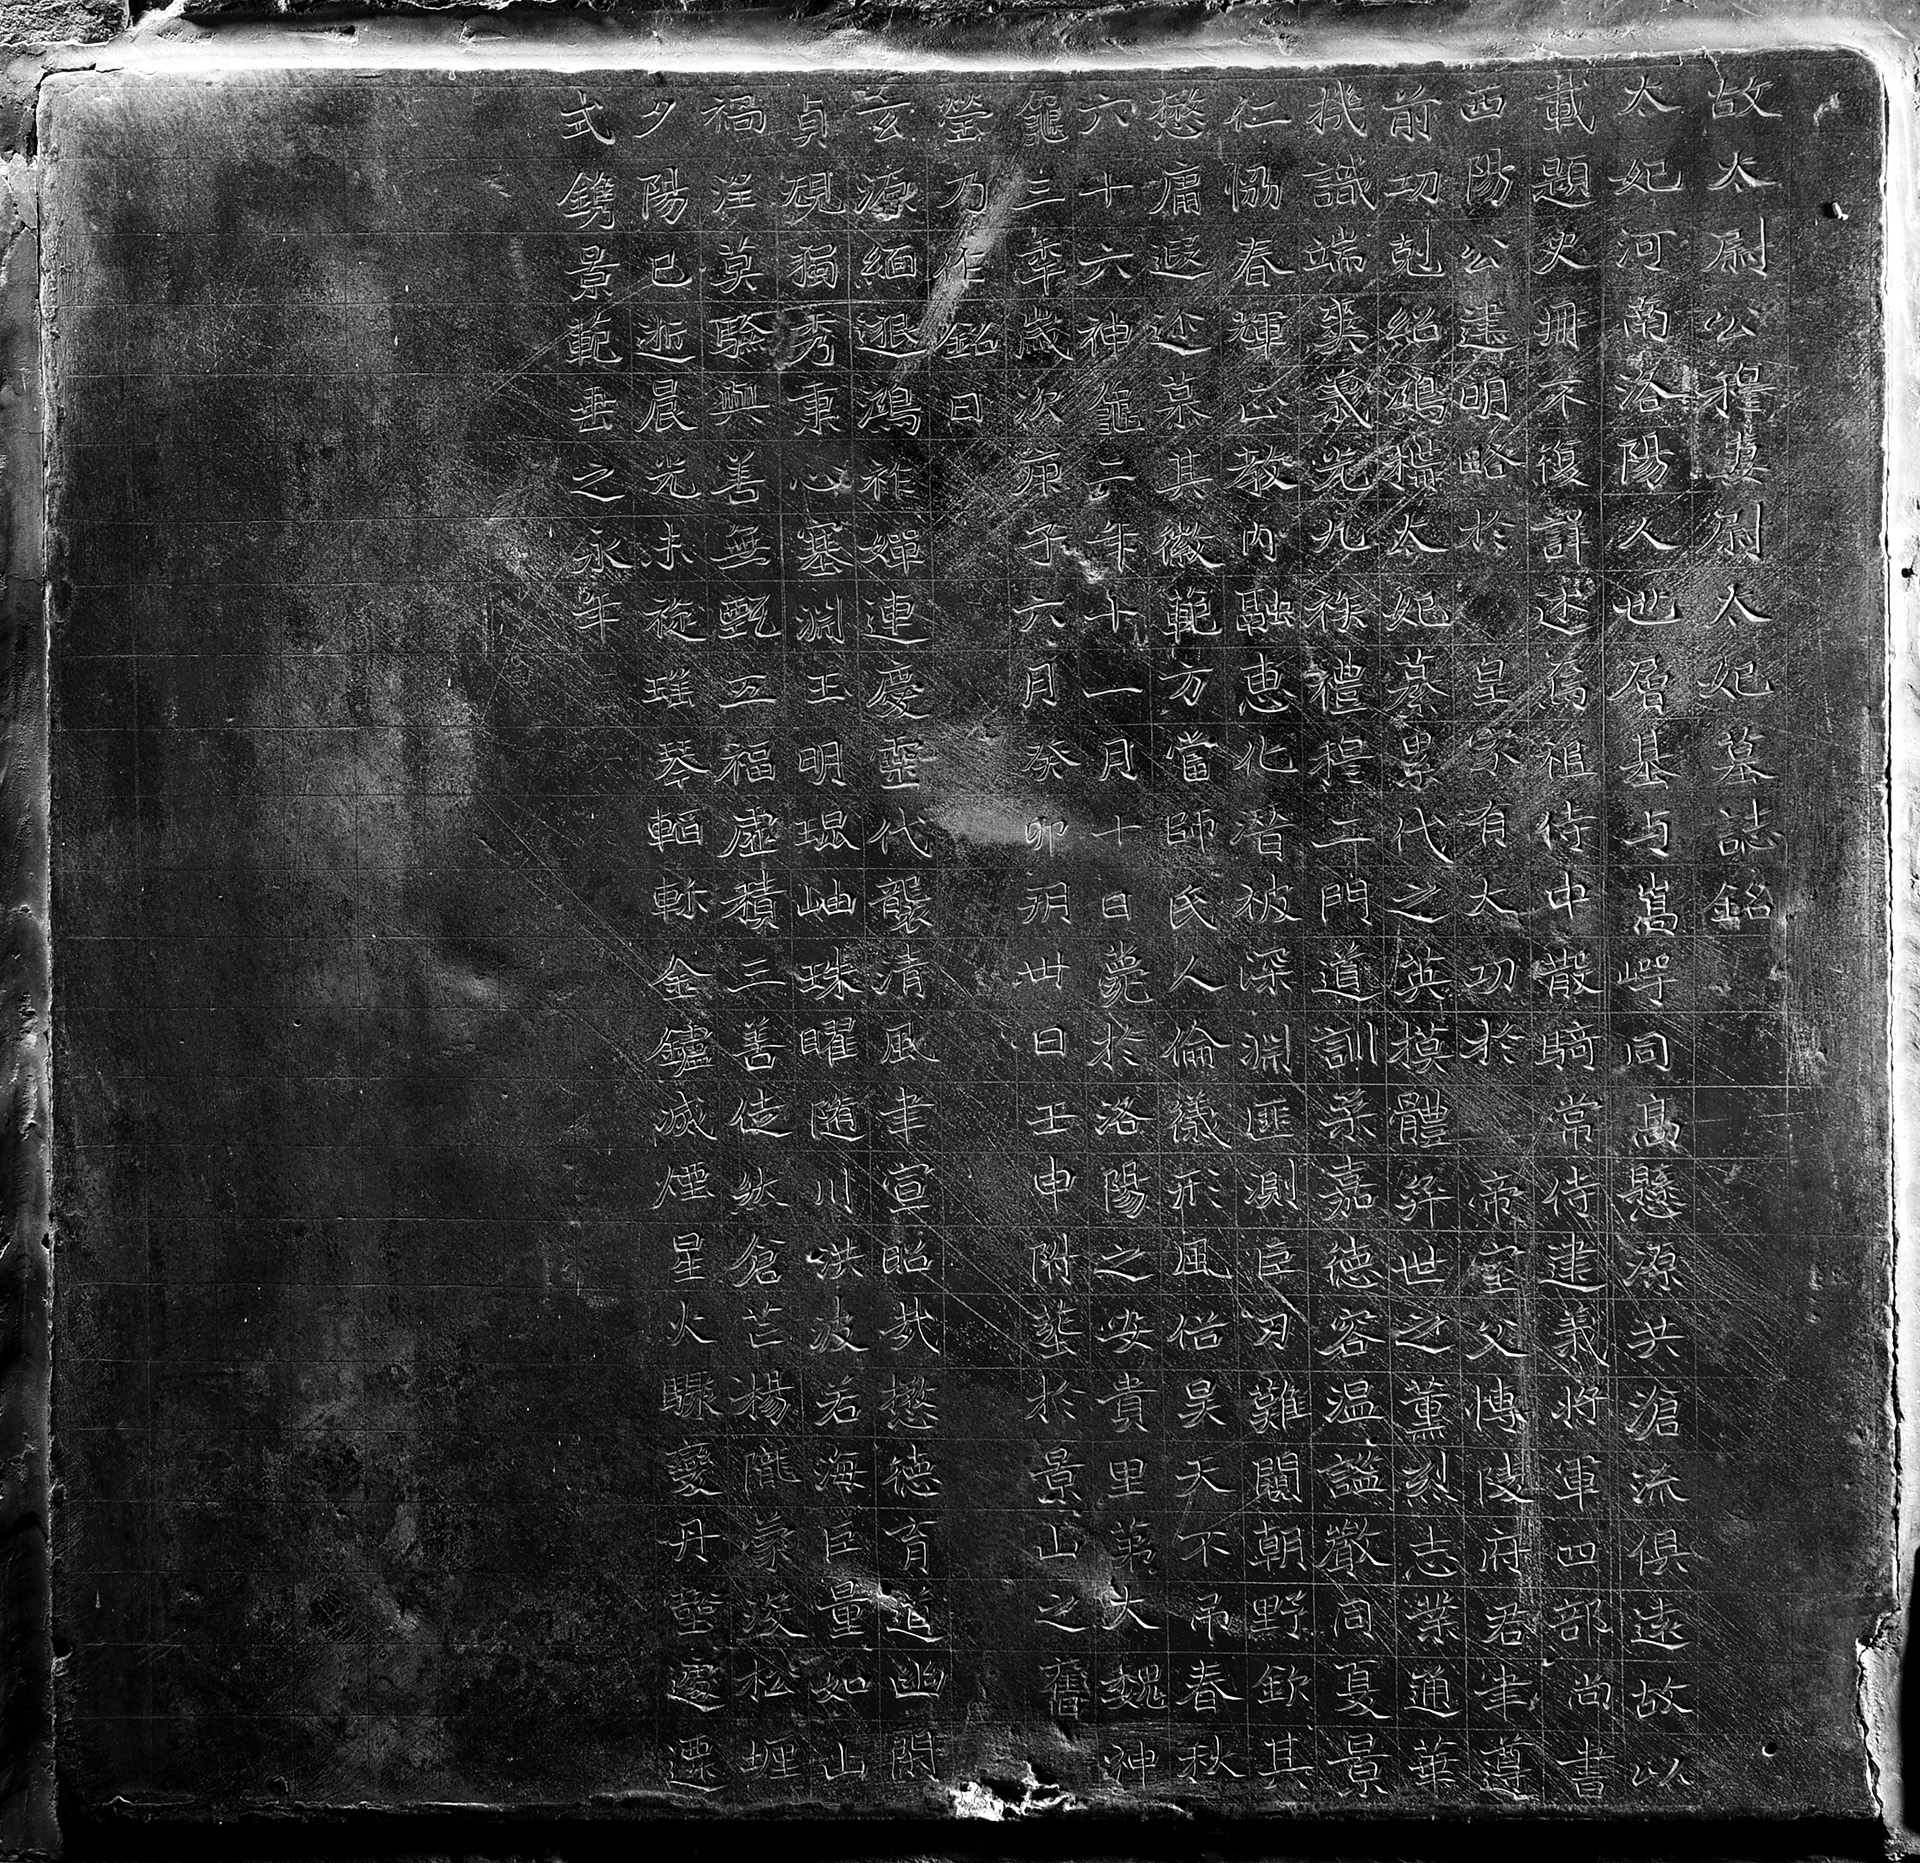 故太尉公穆妻尉太妃墓誌銘
太妃河南洛陽人也層基与嵩崿同高懸源共滄流俱遠故以
載題史冊不復詳述焉祖侍中散騎常侍建義將軍四部尚書
西陽公建明略於皇家有大功於帝室父博陵府君聿遵
前功剋紹鴻櫑太妃蓁累代之英摸體弈世之薰烈志業通華
機識端爽藹光九族禮穆二門道訓柔嘉德容温謐聲同夏景
仁協春輝正教內融惠化潛被深淵匪測臣刃難闚朝野欽其
懋庸遐迩慕其徽範方當師氏人倫儀形風俗昊天不吊春秋
六十六神龜二年十一月十日薨於洛陽之安貴里第大魏神
龜三年歲次庚子六月癸卯朔卅日壬申附葬於景山之舊
塋乃作銘曰
玄源緬邈鴻祚嬋連慶靈代襲清風聿宣昭哉懋德育道幽閑
貞硯獨秀秉心塞淵玉明琨岫珠曜随川洪波若海巨量如山
禍淫莫驗與善無甄五福虛積三善徒然倉芒楊隴蒙淡松堙
夕陽已逝晨光未旋瑤琴輟軫金鑪滅煙星火驟變丹壑遽遷
式鐫景範垂之永年